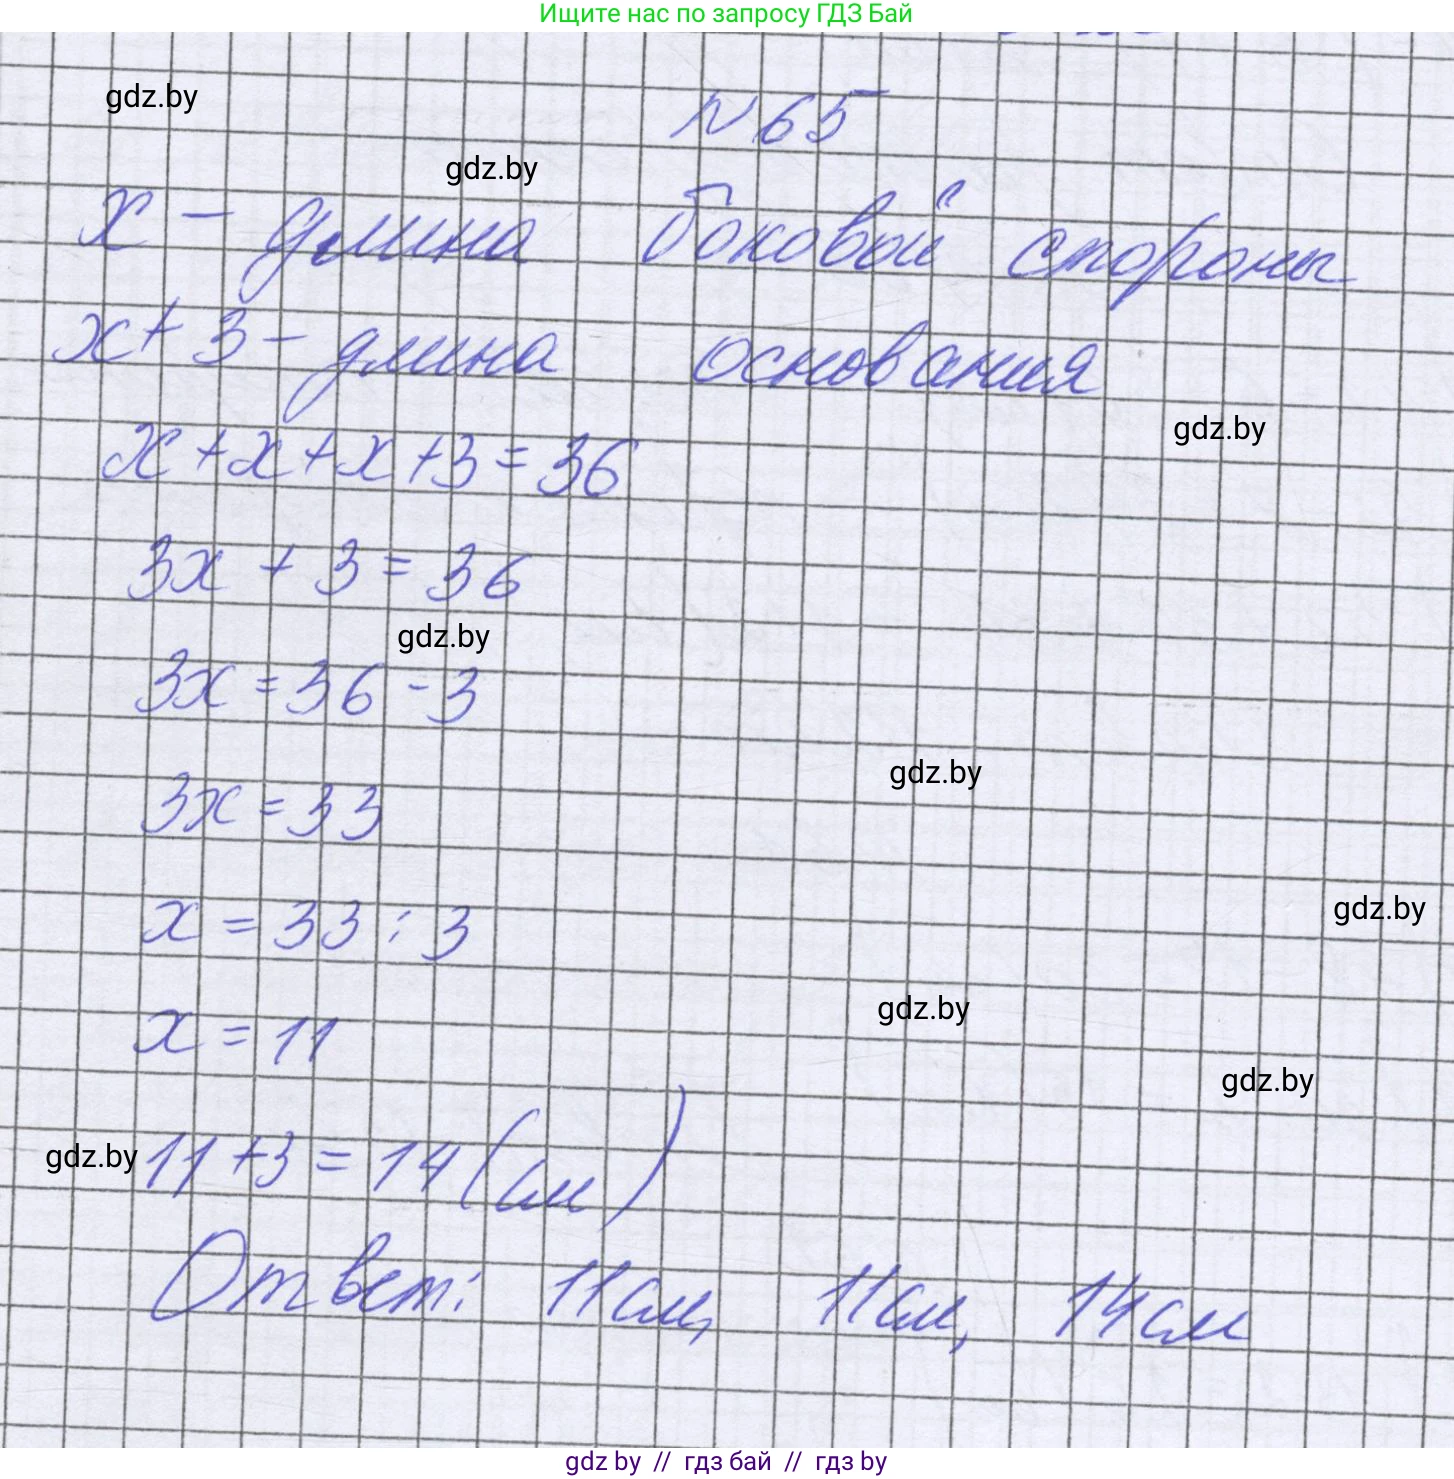 Ищите нас по запросу ГДЗ Бай
gdz.by
N65
gdz.by
x – длина боковой стороны
x+3 – длина основания
gdz.by
x+x+x+3=36
3x+3=36
gdz.by
3x=36-3
gdz.by
3x=33
gdz.by
x=33:3
gdz.by
x=11
gdz.by
gdz.by
11+3=14(см)
Ответ: 11см, 11см, 14см
gdz by // гдз бай // гдз by